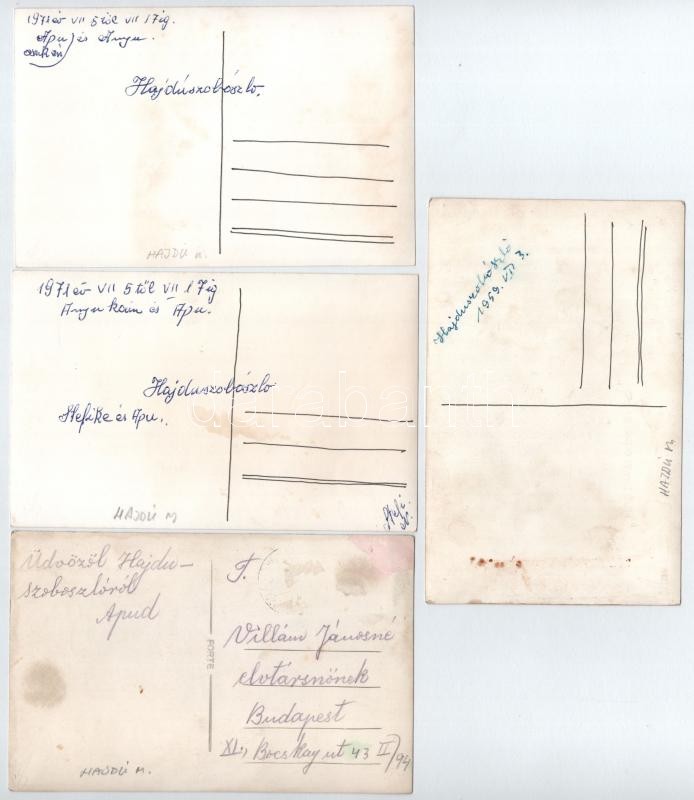 1971 év VII 5től VII 17ig.
Apu és Anyu.
Hajdúszobószló.
HAJDÚ M.
1971 év VII 5től VII 17ig
Anyukám és Apu.
Hajduszobószló
Stefike és Apu.
HAJDÚ M
Hajduszobószló
1959. VII 3.
HAJDÚ M
darabanth
Üdvözöl Hajdu-
szoboszlóról
Apud
FORTE
T.
Villám Jánosné
elvtársnőnek
Budapest
XI., Bocskay ut 43 II/94
HAJDÚ M.